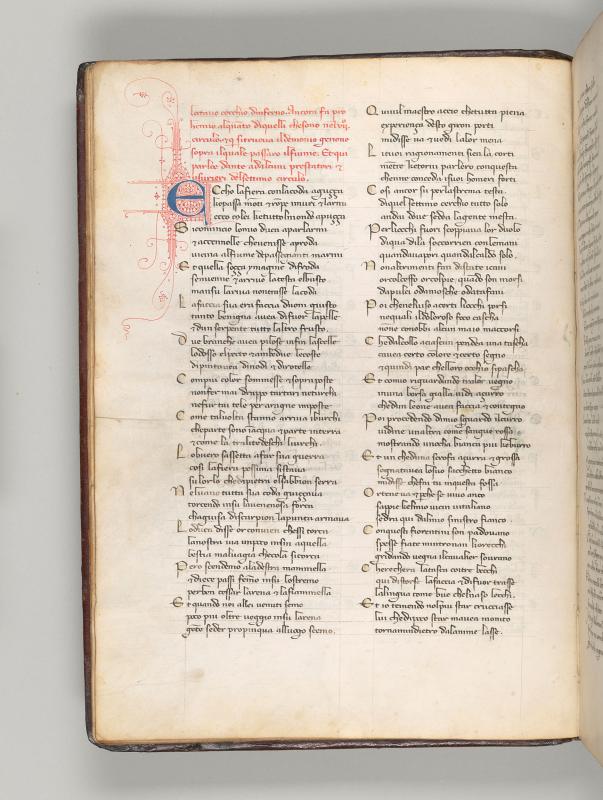 lataua cerchio dinferno. Ancora fa pro
hemio alquato di quelli che sono nel vij.
circulo. et si truoua il demonio gerione
sopra il quale passaro il fiume. Et qui
parlo dante ad alcuni prestatori et
usurieri del settimo circulo.
Eccho la fiera con la coda aguçça
che passa moti et rope i muri et larmi
ecco colei che tuttol mondo apuçça
Si comincio lomio duca a parlarmi
et accennolle che uenisse aproda
uicina al fin de passeggiati marmi
Et quella soçça ymagine di froda
sen uenne et arriuo la testa el busto
ma nsu la riua non trasse la coda
La faccia sua era faccia duom giusto
tanto benigna auea di fuor la pelle
et dun serpente tutto laltro fusto.
Due branche auea pilose infin lascelle
lo dosso el pecto et ambedue le coste
dipinte auea di nodi et di rotelle
Con piu color sommesse et soprapposte
non fer mai drappo tartari ne turchi
ne fur tai tele per aragne imposte
Come tal uolta stanno a riua i burchi
che parte sono in acqua et parte in terra
et come la tra li tedeschi lurchi
Lo beuero sassetta a far sua guerra
cosi la fiera pessima si staua
su lorlo che di pietra el sabbion serra
Nel uano tutta sua coda guiççaua
torcendo in su la uenenosa forca
cha guisa di scorpion la punta armaua
Lo duca disse or conuien che si torca
la nostra uia un poco in fin a quella
bestia maluagia che cola si corca
Pero scendemo a la destra mammella
et diece passi femo in su lo stremo
per ben cessar la rena et la fiammella
Et quando noi a lei uenuti semo
poco piu oltre ueggio in su la rena
gete seder propinqua al luogo scemo.
Quiui l maestro accio che tutta piena
experiença desto giron porti
mi disse ua et uedi la lor mena
Li tuoi ragionamenti sien la corti
mentre che torni parlero con questa
che ne conceda i suoi homeri forti
Cosi ancor su per la strema testa
di quel settimo cerchio tutto solo
andai doue sedea la gente mesta.
Per li occhi fuori scoppiaua lor duolo
di qua di la soccorrien con le mani
quando a uapori quando al caldo solo.
Non altrimenti fan distate i cani
or col ceffo or col pie. quando son morsi
da pulci o da mosche o da tafani
Poi che nel uiso a certi li occhi porsi
ne quali il doloroso foco casca
non conobbi alcun ma io maccorsi
Che dal collo a ciascun pendea una tasca
cauea certo colore et certo segno
et quindi par che lloro occhio si pasca
Et comio riguardando tra lor uegno
in una borsa gialla uidi açurro
che dun leone auea faccia et contegno
Poi procedendo di mio sguardo il curro
uidine unaltra come sangue rossa
mostrando unocha bianca piu che burro
Et un che duna scrofa açurra et grossa
segnato auea lo suo sacchetto bianco
mi disse che fai tu in questa fossa
Or te ne ua et perche se uiuo anco
sappi chel mio uicin uitaliano
sedra qui dal mio sinistro fianco.
Con questi fiorentini son padouano
spesse fiate mintronan li orecchi
gridando uegna il caualier sourano
Che rechera la tasca con tre becchi
qui distorse la faccia et di fuor trasse
la lingua come bue chel naso lecchi.
Et io temendo nol piu star crucciasse
lui che di poco star mauea monito
tornami indietro da lanime lasse.